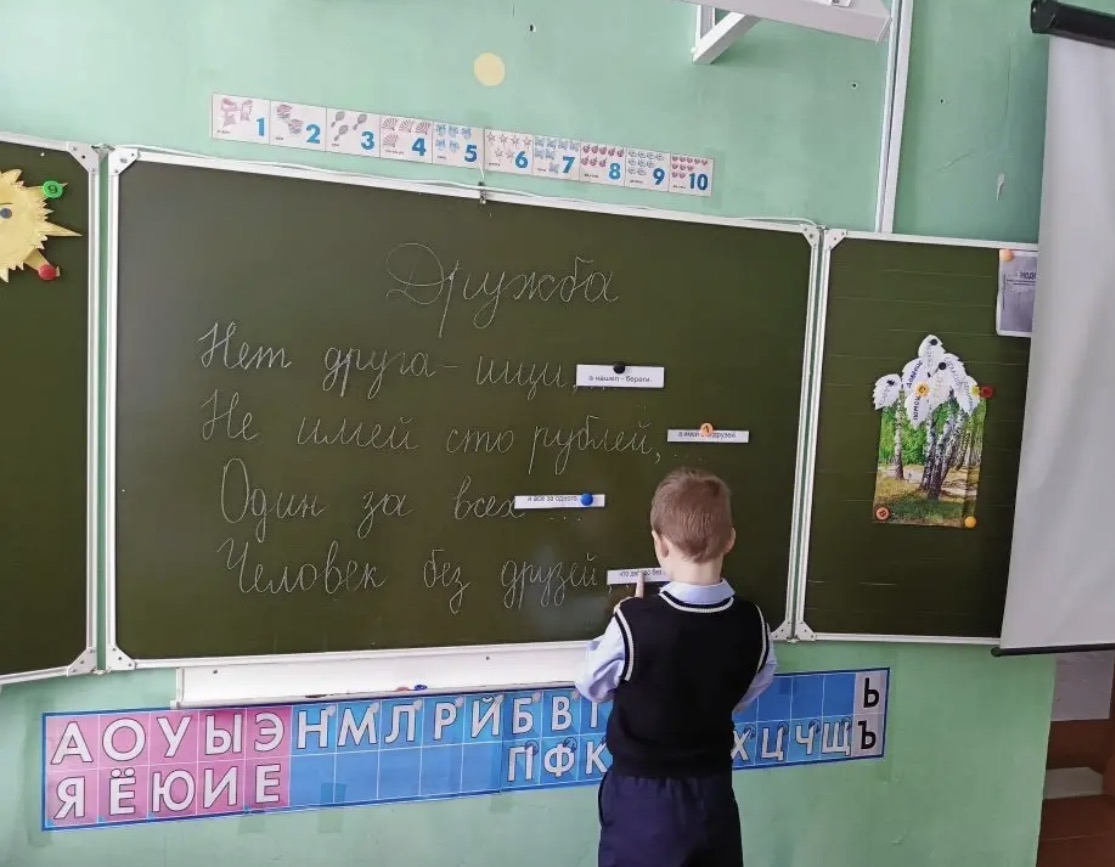 1 2 3 4 5 6 7 8 9 10
Дружба
Нет друга – ищи, а нашел – береги.
Не имей сто рублей, а имей друзей
Один за всех и все за одного
Человек без друзей, что дерево без
А О У Ы Э Н М Л Р Й Б В Г Ь
Я Ё Ю И Е П Ф К Х Ц Ч Щ Ъ